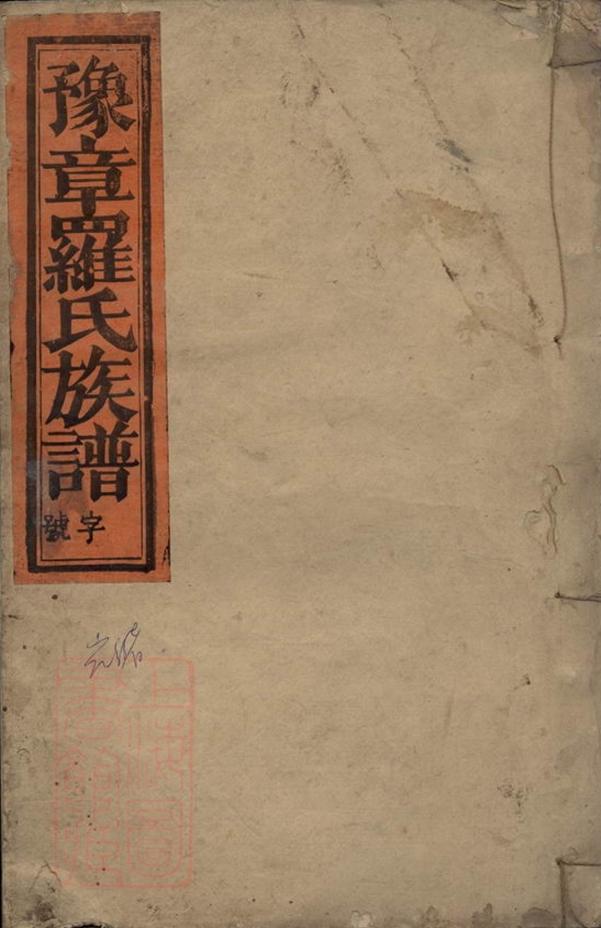 豫章羅氏族譜
字號